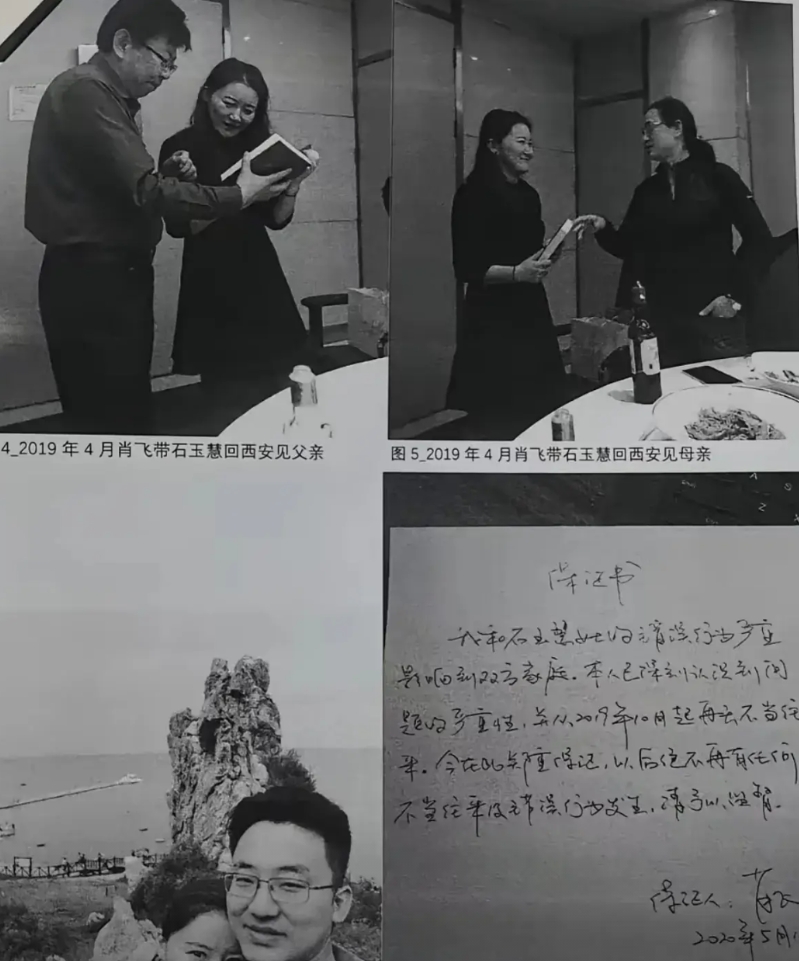 4_2019 年 4 月肖飞带石玉慧回西安见父亲
图 5_2019 年 4 月肖飞带石玉慧回西安见母亲
保证书
我和石玉慧女士的错误行为严重
影响到双方家庭。本人已深刻认识到问
题的严重性，并从2019年10月起再无不当往
来。今在此郑重保证，以后绝不再有任何
不当往来及错误行为发生，请予以监督。
保证人：肖飞
2020年5月1